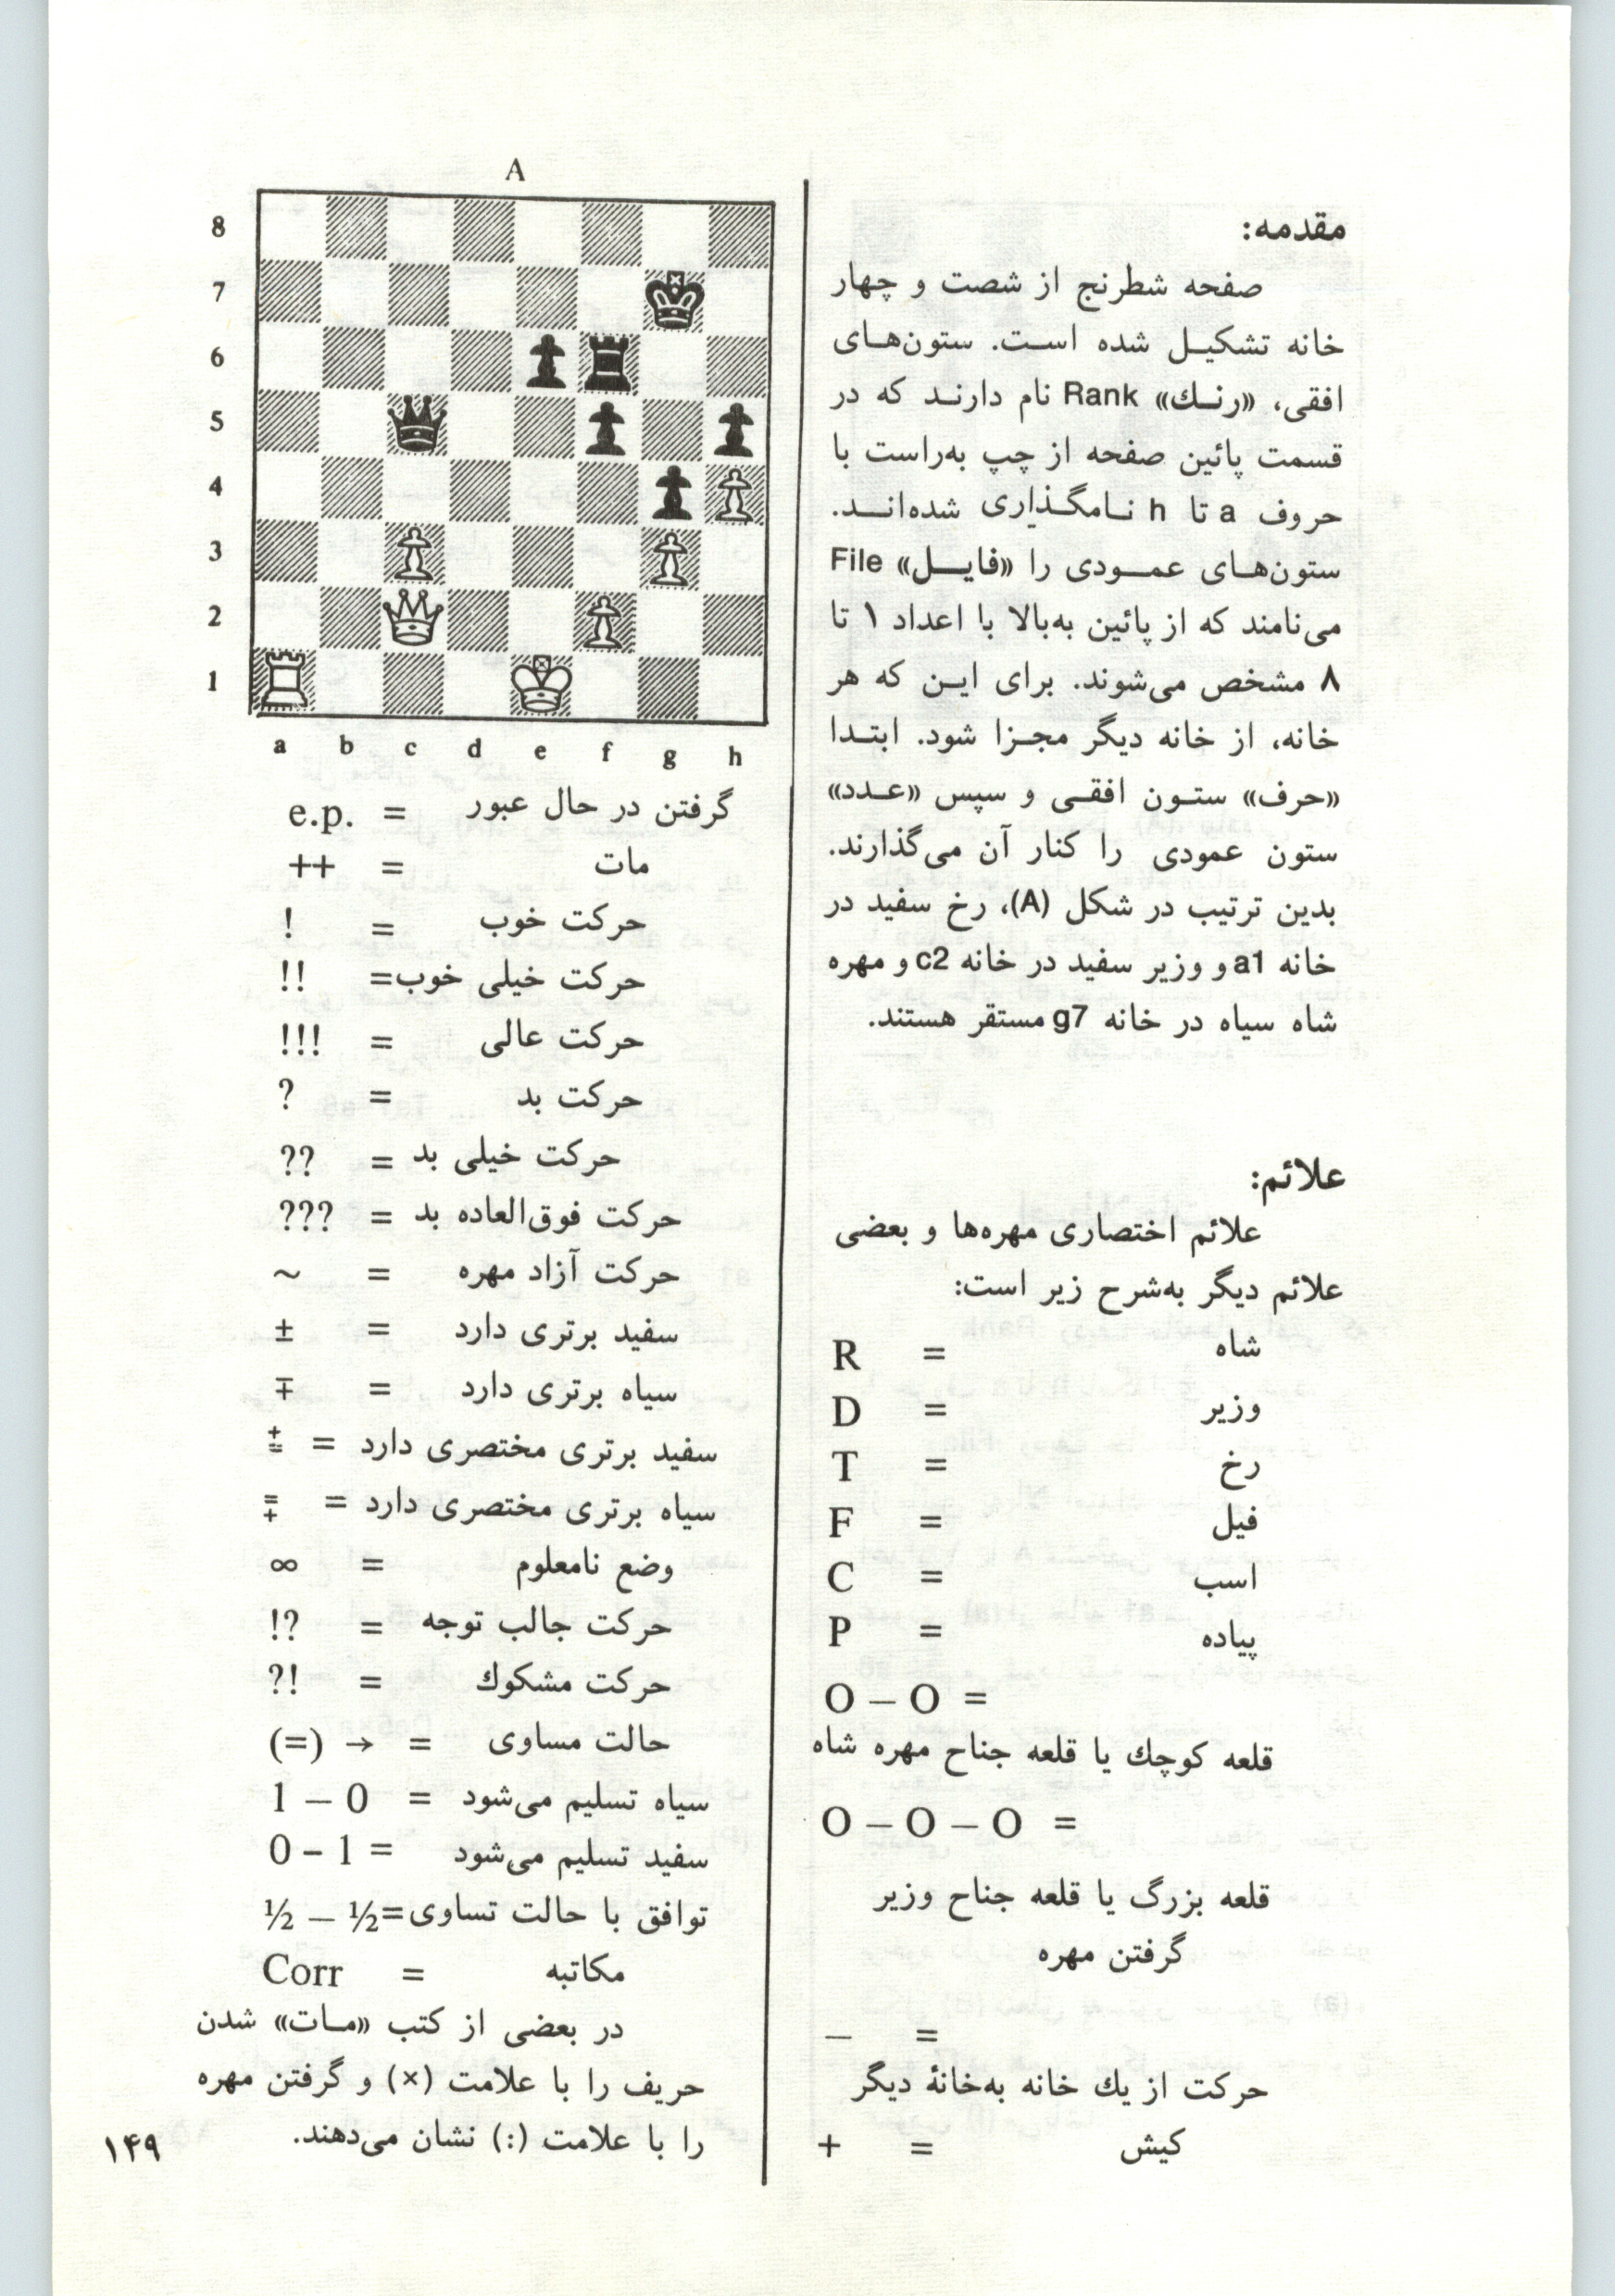 مقدمه:
صفحه شطرنج از شصت و چهار
خانه تشکیـل شده اسـت. ستون‌هـای
افقی، «رنـك» Rank نام دارنـد که در
قسمت پائین صفحه از چپ به‌راست با
حروف a تا h نـامگـذاری شده‌انــد.
ستون‌هـای عمــودی را «فایــل» File
می‌نامند که از پائین به‌بالا با اعداد ۱ تا
۸ مشخص می‌شوند. برای ایـن که هر
خانه، از خانه دیگر مجـزا شود. ابتـدا
«حرف» ستـون افقـی و سپس «عـدد»
ستون عمودی را کنار آن می‌گذارند.
بدین ترتیب در شکل (A)، رخ سفید در
خانه a1 و وزیر سفید در خانه c2 و مهره
شاه سیاه در خانه g7 مستقر هستند.
علائم:
علائم اختصاری مهره‌ها و بعضی
علائم دیگر به‌شرح زیر است:
شاه = R
وزیر = D
رخ = T
فیل = F
اسب = C
پیاده = P
O – O =
قلعه کوچك یا قلعه جناح مهره شاه
O – O – O =
قلعه بزرگ یا قلعه جناح وزیر
گرفتن مهره
– =
حرکت از یك خانه به‌خانهٔ دیگر
کیش = +
A
8
7
6
5
4
3
2
1
a b c d e f g h
گرفتن در حال عبور = e.p.
مات = ++
حرکت خوب = !
حرکت خیلی خوب= !!
حرکت عالی = !!!
حرکت بد = ?
حرکت خیلی بد = ??
حرکت فوق‌العاده بد = ???
حرکت آزاد مهره = ~
سفید برتری دارد = ±
سیاه برتری دارد = ∓
سفید برتری مختصری دارد = ⩲
سیاه برتری مختصری دارد = ⩱
وضع نامعلوم = ∞
حرکت جالب توجه = !?
حرکت مشکوك = ?!
حالت مساوی = → (=)
سیاه تسلیم می‌شود = 1 – 0
سفید تسلیم می‌شود = 0 – 1
توافق با حالت تساوی=½ – ½
مکاتبه = Corr
در بعضی از کتب «مـات» شدن
حریف را با علامت (×) و گرفتن مهره
را با علامت (:) نشان می‌دهند.
۱۴۹